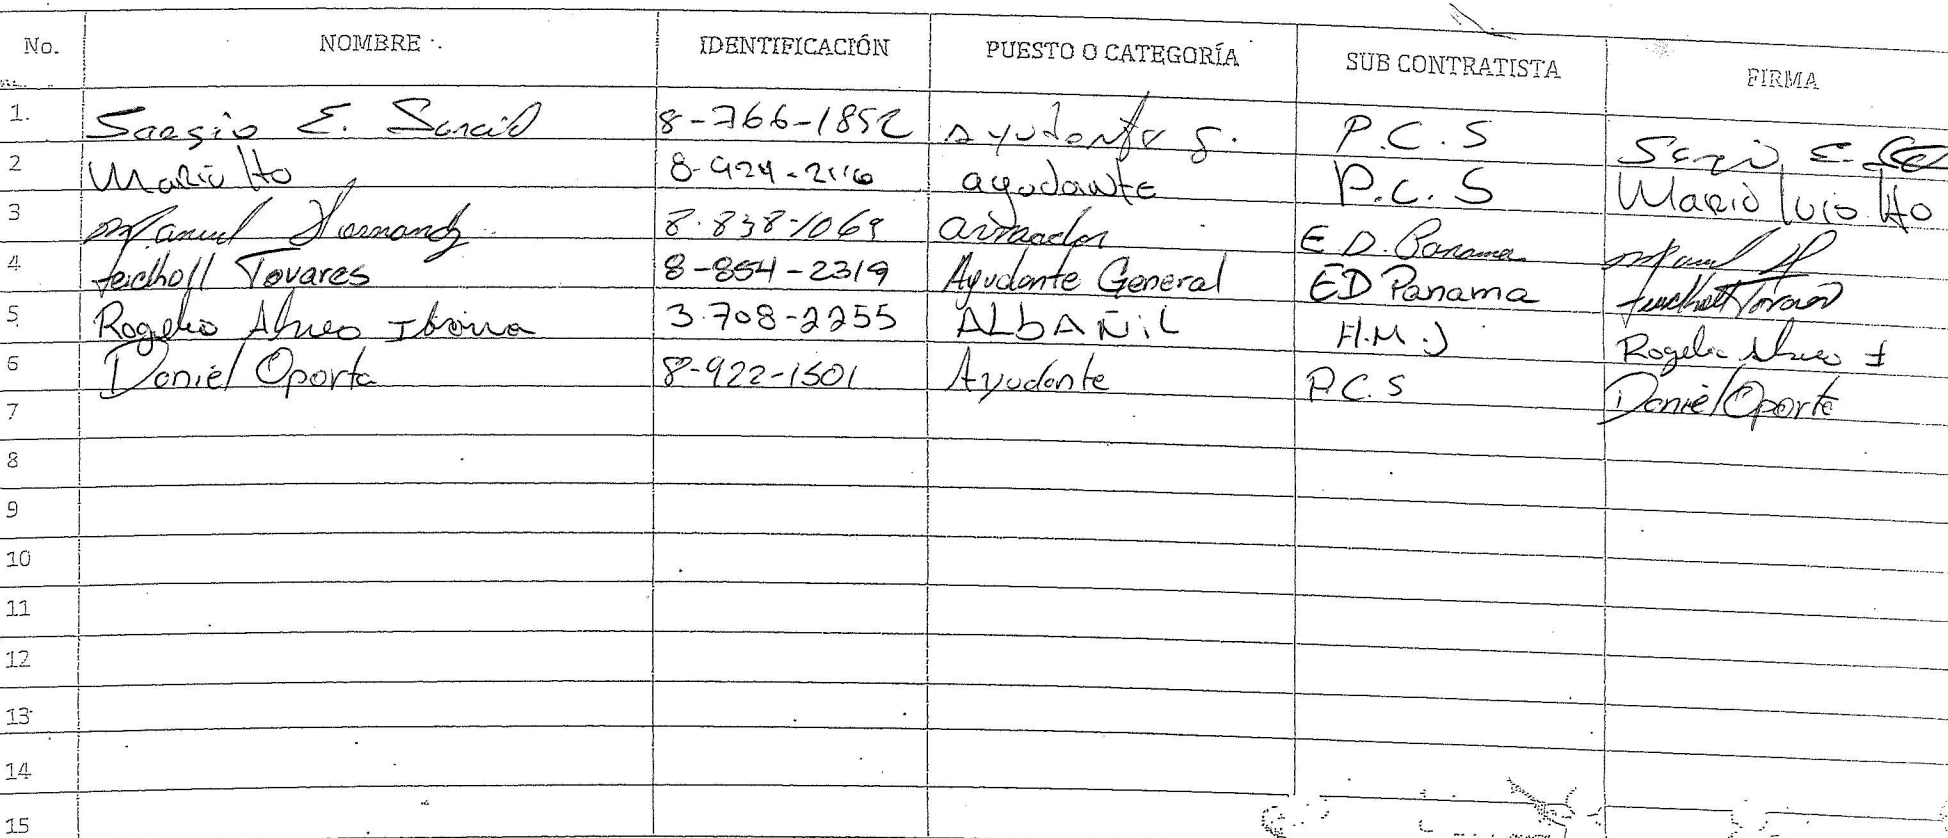 No. NOMBRE IDENTIFICACIÓN PUESTO O CATEGORÍA SUB CONTRATISTA FIRMA
1. E. 8-766-1852 P.C.S E.
2 Mario Ho 8-924-2116 ayudante P.C.S Mario Luis Ho
3 Manuel 8-838-1069 armador E.D. Panama Manuel H
4 Tovares 8-854-2319 Ayudante General ED Panama
5 Rogelio Abreo 3-708-2255 ALbAÑiL H.M.J Rogelio Abreo I
6 Daniel Oporta 8-922-1501 Ayudante P.C.S Daniel Oporta
7
8
9
10
11
12
13
14
15